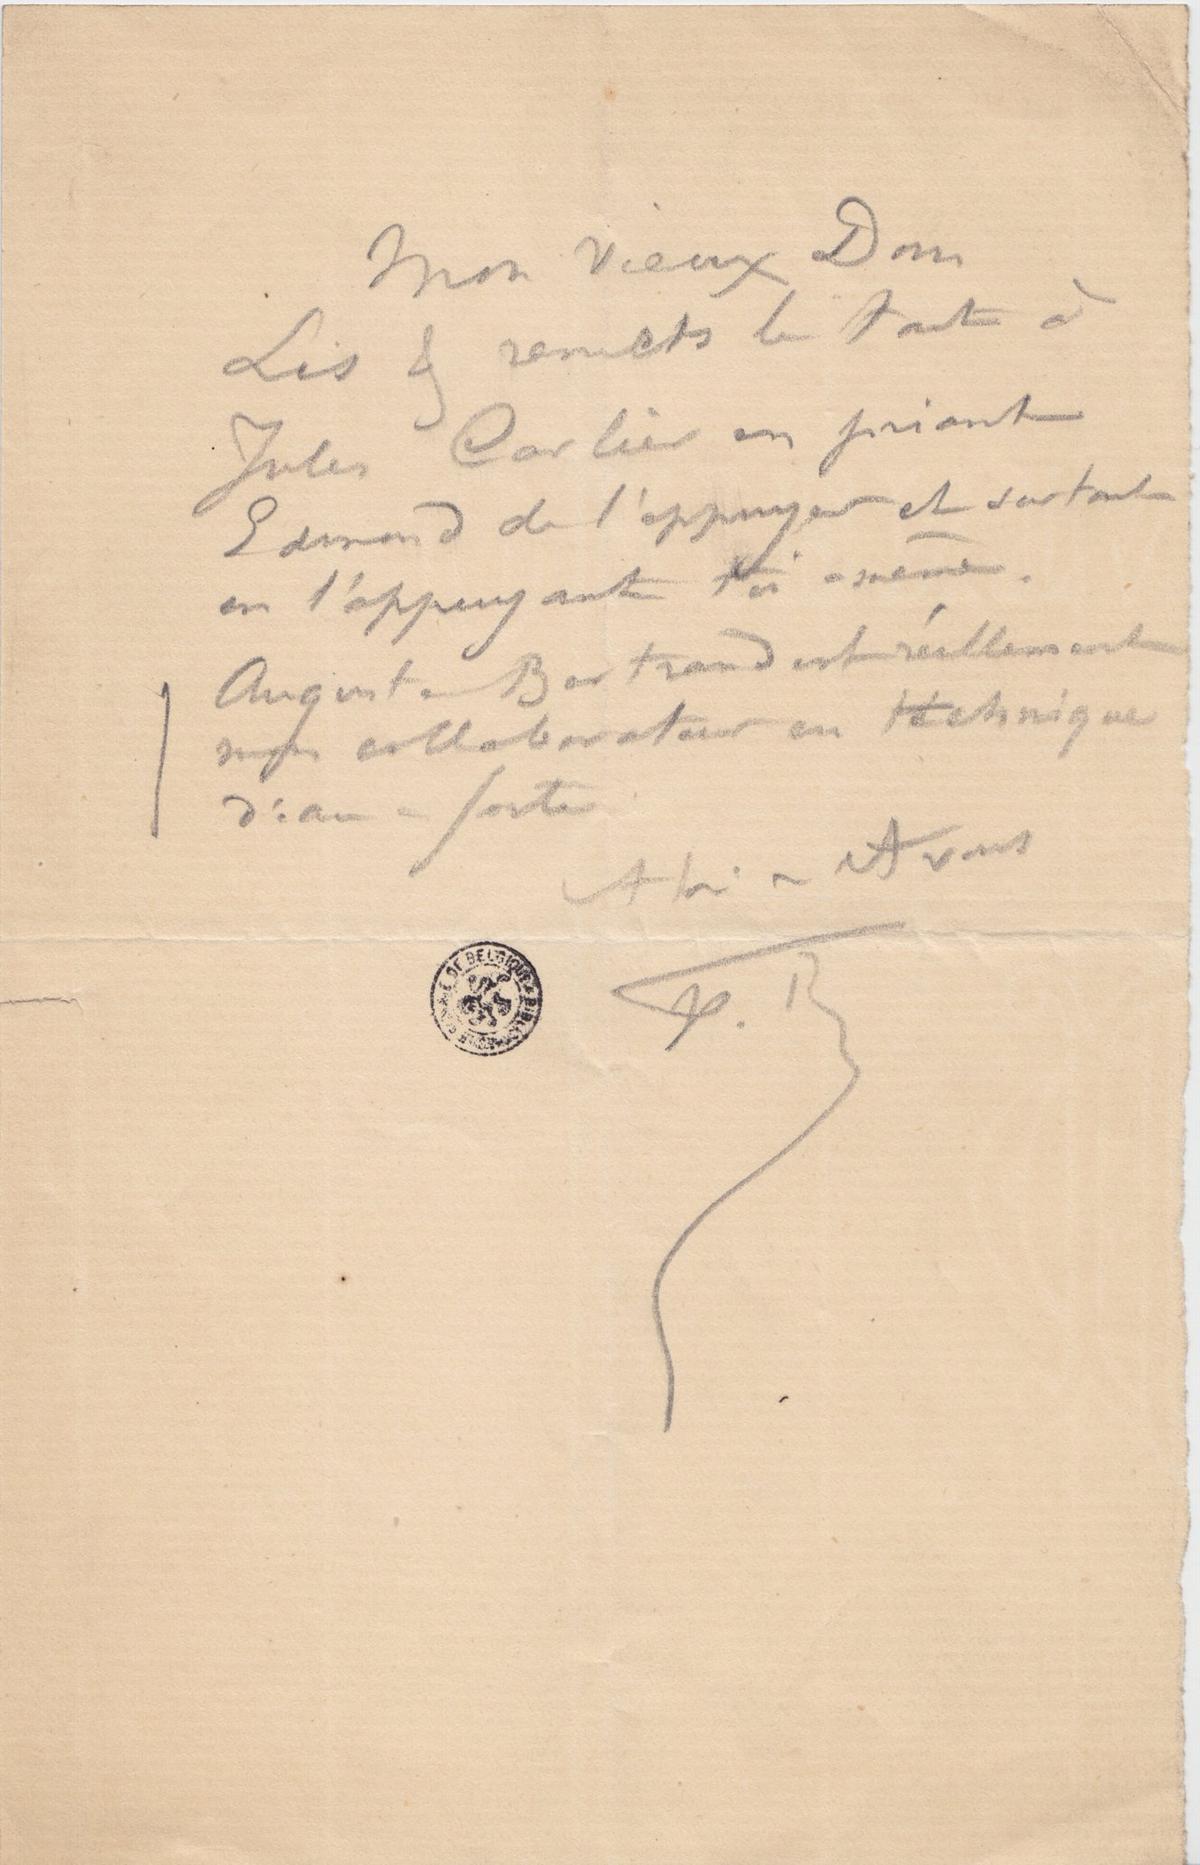 Mon vieux Dom
Lis & remets le tout à
Jules Carlier en priant
Edmond de l'appuyer et surtout
en l'appuyant toi-même.
Auguste Bertrand est réellement
mon collaborateur en technique
d'eau-forte
A toi - A vous
F. R
DE BELGIQUE